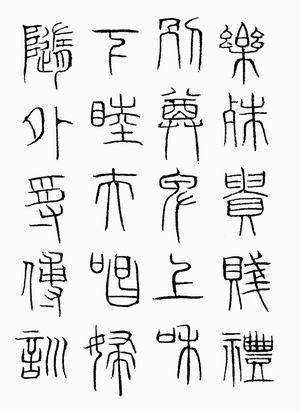 樂殊貴賤禮
別尊卑上和
下睦夫唱婦
隨外受傅訓